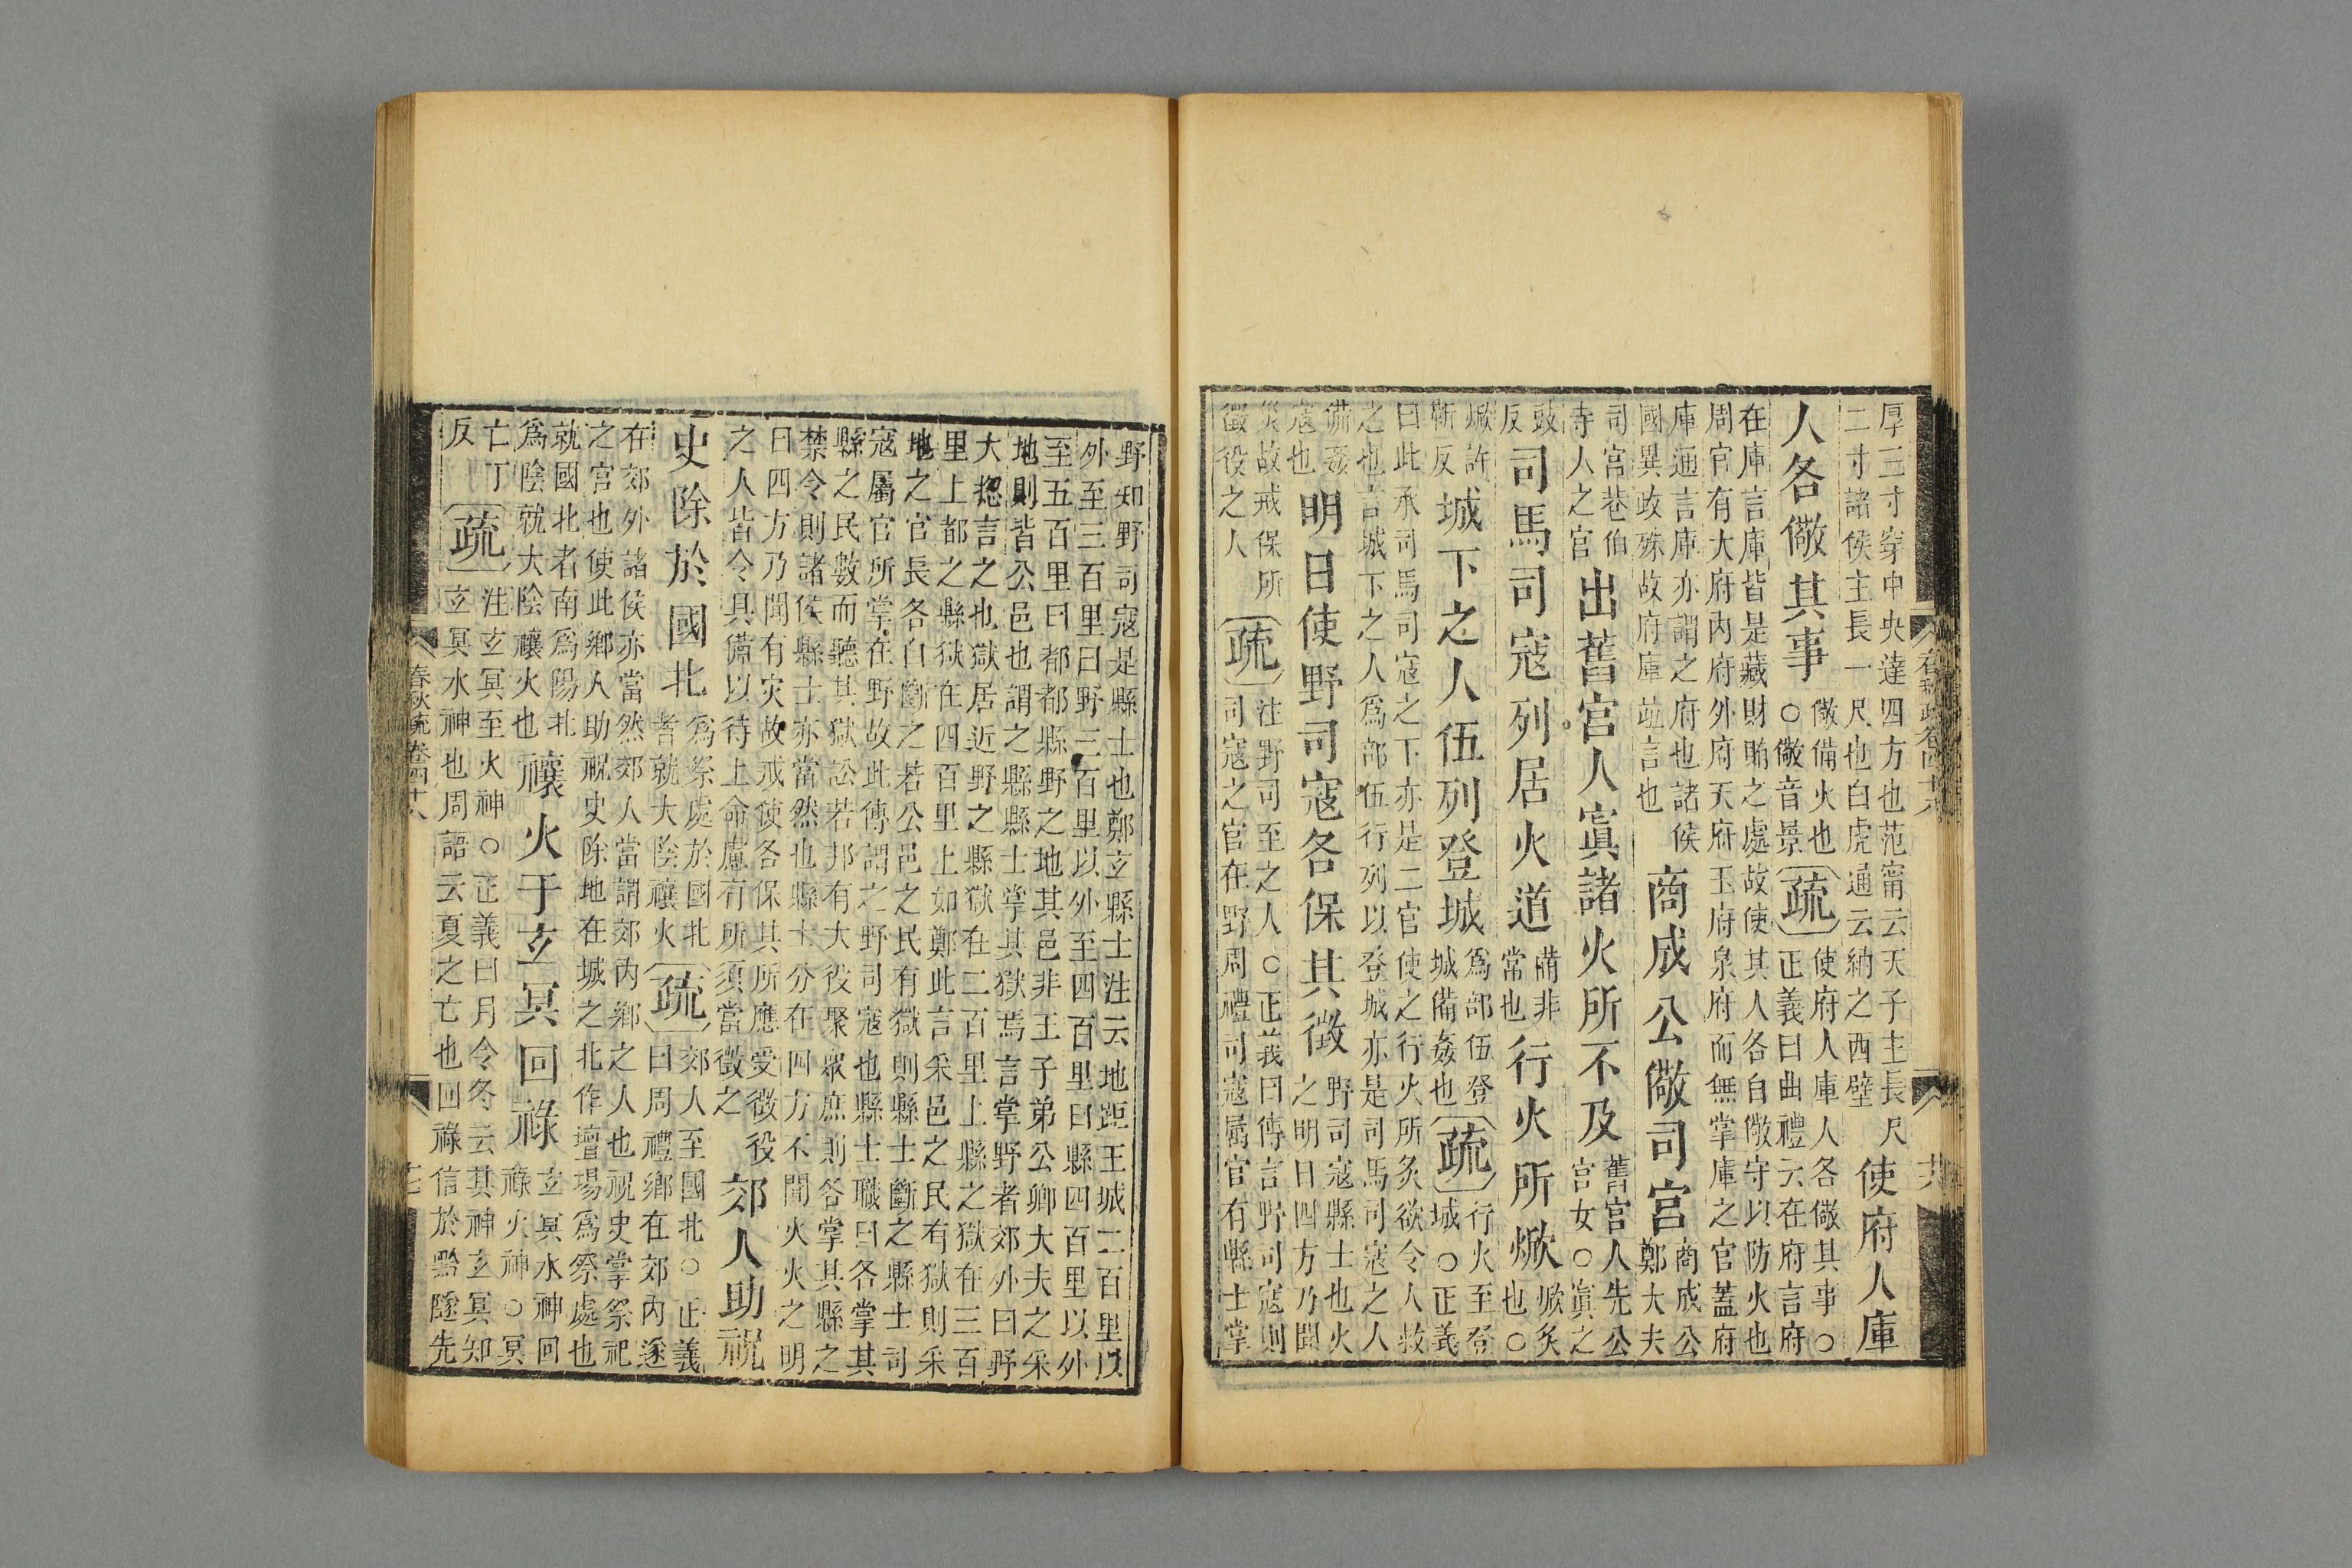 厚三寸穿中央達四方也范甯云天子主長尺
二寸諸侯主長一尺也白虎通云納之西壁
使府人庫
人各儆其事
儆備火也
○儆音景
疏
使府人庫人各儆其事○
正義曰曲禮云在府言府
在庫言庫皆是藏財賄之處故使其人各自儆守以防火也
周官有大府内府外府天府玉府泉府而無掌庫之官蓋府
庫通言庫亦謂之府也諸侯
國異政殊故府庫竝言也
商成公儆司宮
商成公
鄭大夫
司宮巷伯
寺人之官
出舊宮人寘諸火所不及
舊宮人先公
宮女○寘之
豉
反
司馬司寇列居火道
備非
常也
行火所焮
焮炙
也○
焮許
靳反
城下之人伍列登城
爲部伍登
城備姦也
疏
行火至登
城○正義
曰此承司馬司寇之下亦是二官使之行火所炙欲令人救
之也言城下之人爲部伍行列以登城亦是司馬司寇之人
備姦
寇也
明日使野司寇各保其徵
野司寇縣士也火
之明日四方乃聞
災故戒保所
徵役之人
疏
注野司至之人○正義曰傳言野司寇則
司寇之官在野周禮司寇屬官有縣士掌
野知野司寇是縣士也鄭玄縣士注云地距王城二百里以
外至三百里曰野三百里以外至四百里曰縣四百里以外
至五百里曰都都縣野之地其邑非王子弟公卿大夫之采
地則皆公邑也謂之縣縣士掌其獄焉言掌野者郊外曰野
大揔言之也獄居近野之縣獄在二百里上縣之獄在三百
里上都之縣獄在四百里上如鄭此言采邑之民有獄則采
地之官長各自斷之若公邑之民有獄則縣士斷之縣士司
寇屬官所掌在野故此傳謂之野司寇也縣士職曰各掌其
縣之民數而聽其獄訟若邦有大役聚眾庶則各掌其縣之
禁令則諸侯縣士亦當然也縣士分在四方不聞火火之明
日四方乃聞有灾故戒使各保其所應受徵役
之人皆令具備以待上命慮有所須當徵之
郊人助祝
史除於國北
爲祭處於國北
者就大陰禳火
疏
郊人至國北○正義
曰周禮鄉在郊內遂
在郊外諸侯亦當然郊人當謂郊內鄉之人也祝史掌祭祀
之官也使此鄉人助祝史除地在城之北作壇場爲祭處也
就國北者南爲陽北
爲陰就大陰禳火也
禳火于玄冥回祿
玄冥水神回
祿火神○冥
亡丁
反
疏
注玄冥至火神○正義曰月令冬云其神玄冥知
玄冥水神也周語云夏之亡也回祿信於黔隧先
春秋疏卷四十八